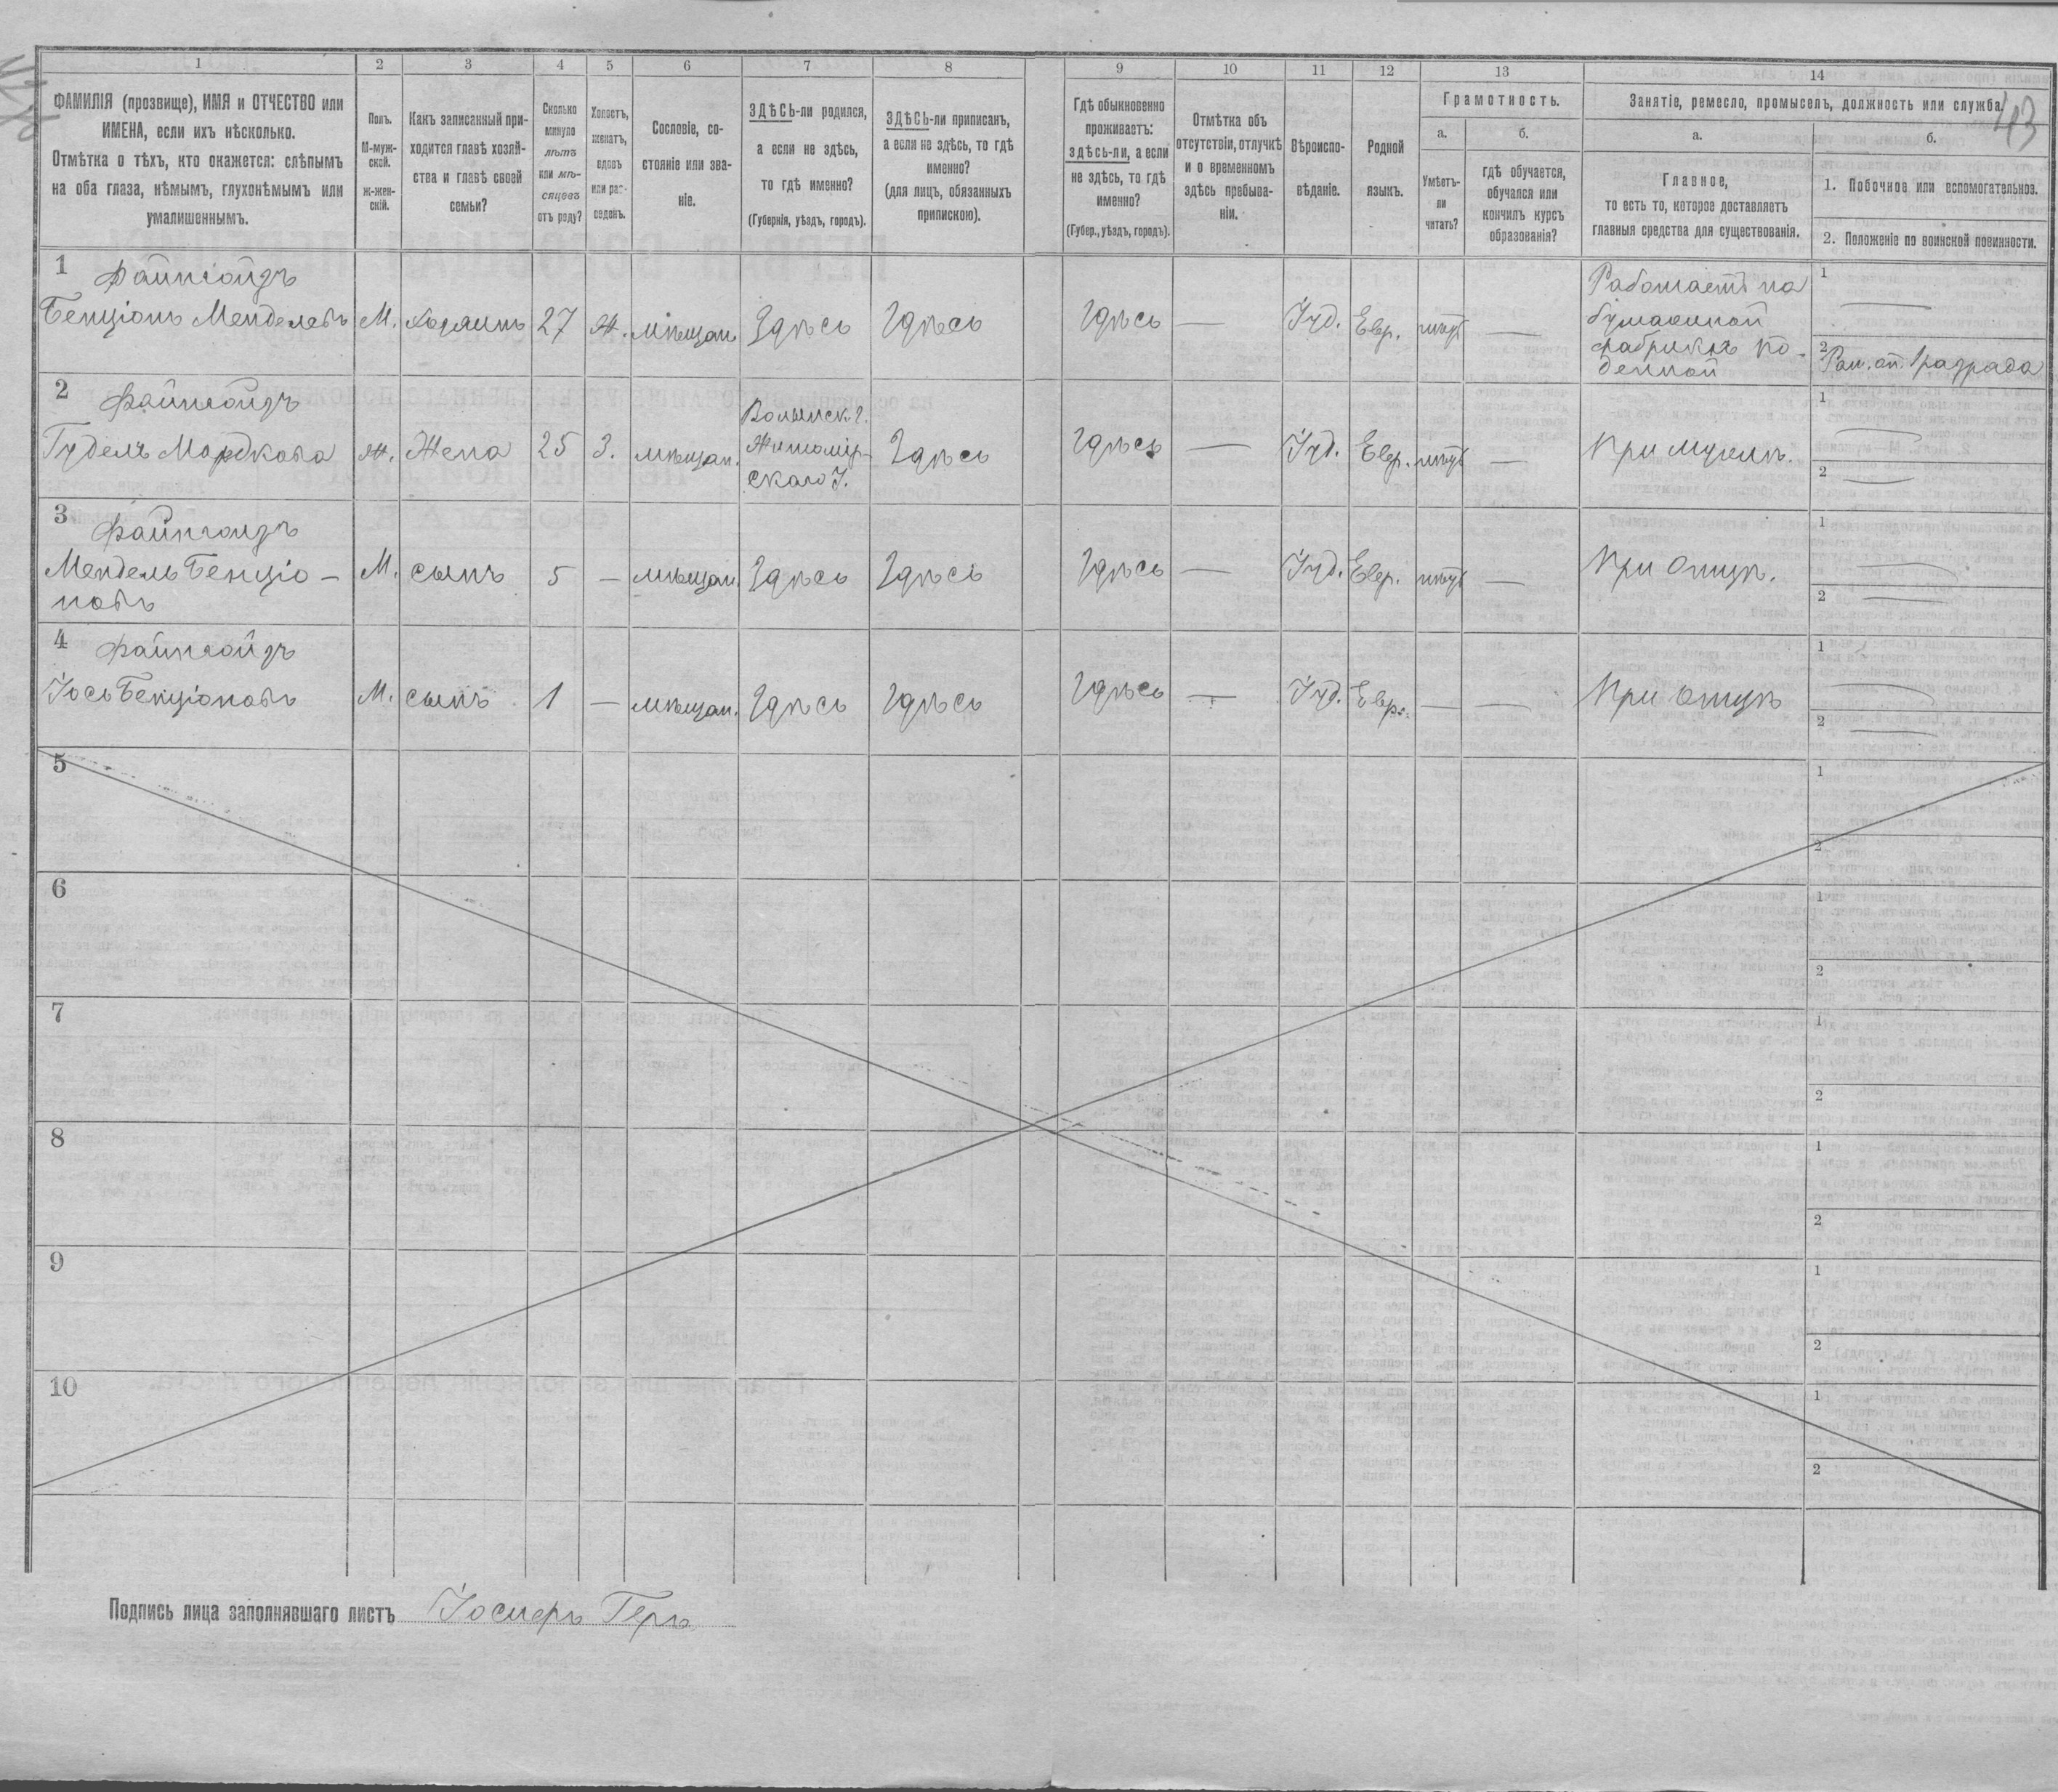 1 2 3 4 5 6 7 8 9 10 11 12 13 14
ФАМИЛІЯ (прозвище), ИМЯ и ОТЧЕСТВО или
ИМЕНА, если ихъ нѣсколько.
Отмѣтка о тѣхъ, кто окажется: слѣпымъ
на оба глаза, нѣмымъ, глухонѣмымъ или
умалишеннымъ.
Полъ.
М-муж-
ской.
Ж-жен-
скій.
Какъ записанный при-
ходится главѣ хозяй-
ства и главѣ своей
семьи?
Сколько
минуло
лѣтъ
или мѣ-
сяцевъ
отъ роду?
Холостъ,
женатъ,
вдовъ
или раз-
веденъ.
Сословіе, со-
стояніе или зва-
ніе.
ЗДѢСЬ-ли родился,
а если не здѣсь,
то гдѣ именно?
(Губернія, уѣздъ, городъ).
ЗДѢСЬ-ли приписанъ,
а если не здѣсь, то гдѣ
именно?
(для лицъ, обязанныхъ
припискою).
Гдѣ обыкновенно
проживаетъ:
здѣсь-ли, а если
не здѣсь, то гдѣ
именно?
(Губер., уѣздъ, городъ).
Отмѣтка объ
отсутствіи, отлучкѣ
и о временномъ
здѣсь пребыва-
ніи.
Вѣроиспо-
вѣданіе.
Родной
языкъ.
Грамотность.
а.
Умѣетъ-
ли
читать?
б.
гдѣ обучается,
обучался или
кончилъ курсъ
образованія?
Занятіе, ремесло, промыселъ, должность или служба.
43
а.
Главное,
то есть то, которое доставляетъ
главныя средства для существованія.
б.
1. Побочное или вспомогательное.
2. Положеніе по воинской повинности.
1 Файнгойдъ
Бенціонъ Менделевъ М. хозяинъ 27 Ж. мѣщан. Здѣсь Здѣсь Здѣсь — Іуд. Евр. —
Работаетъ на
бумажной
фабрикѣ по-
денной
1 —
2 Рат. оп. 1 разряда
2 Файнгойдъ
Гудель Мордкова Ж. Жена 25 З. мѣщан.
Волынск. г.
Житомір-
скаго У.
Здѣсь Здѣсь — Іуд. Евр. — При мужѣ.
1 —
2 —
3 Файнгойдъ
Мендель Бенціо-
новъ
М. сынъ 5 — мѣщан. Здѣсь Здѣсь Здѣсь — Іуд. Евр. — При Отцѣ.
1 —
2 —
4 Файнгойдъ
Іось Бенціоновъ М. сынъ 1 — мѣщан. Здѣсь Здѣсь Здѣсь — Іуд. Евр. — — При отцѣ
1 —
2 —
5 1
2
6 1
2
7 1
2
8 1
2
9 1
2
10 1
2
Подпись лица заполнявшаго листъ